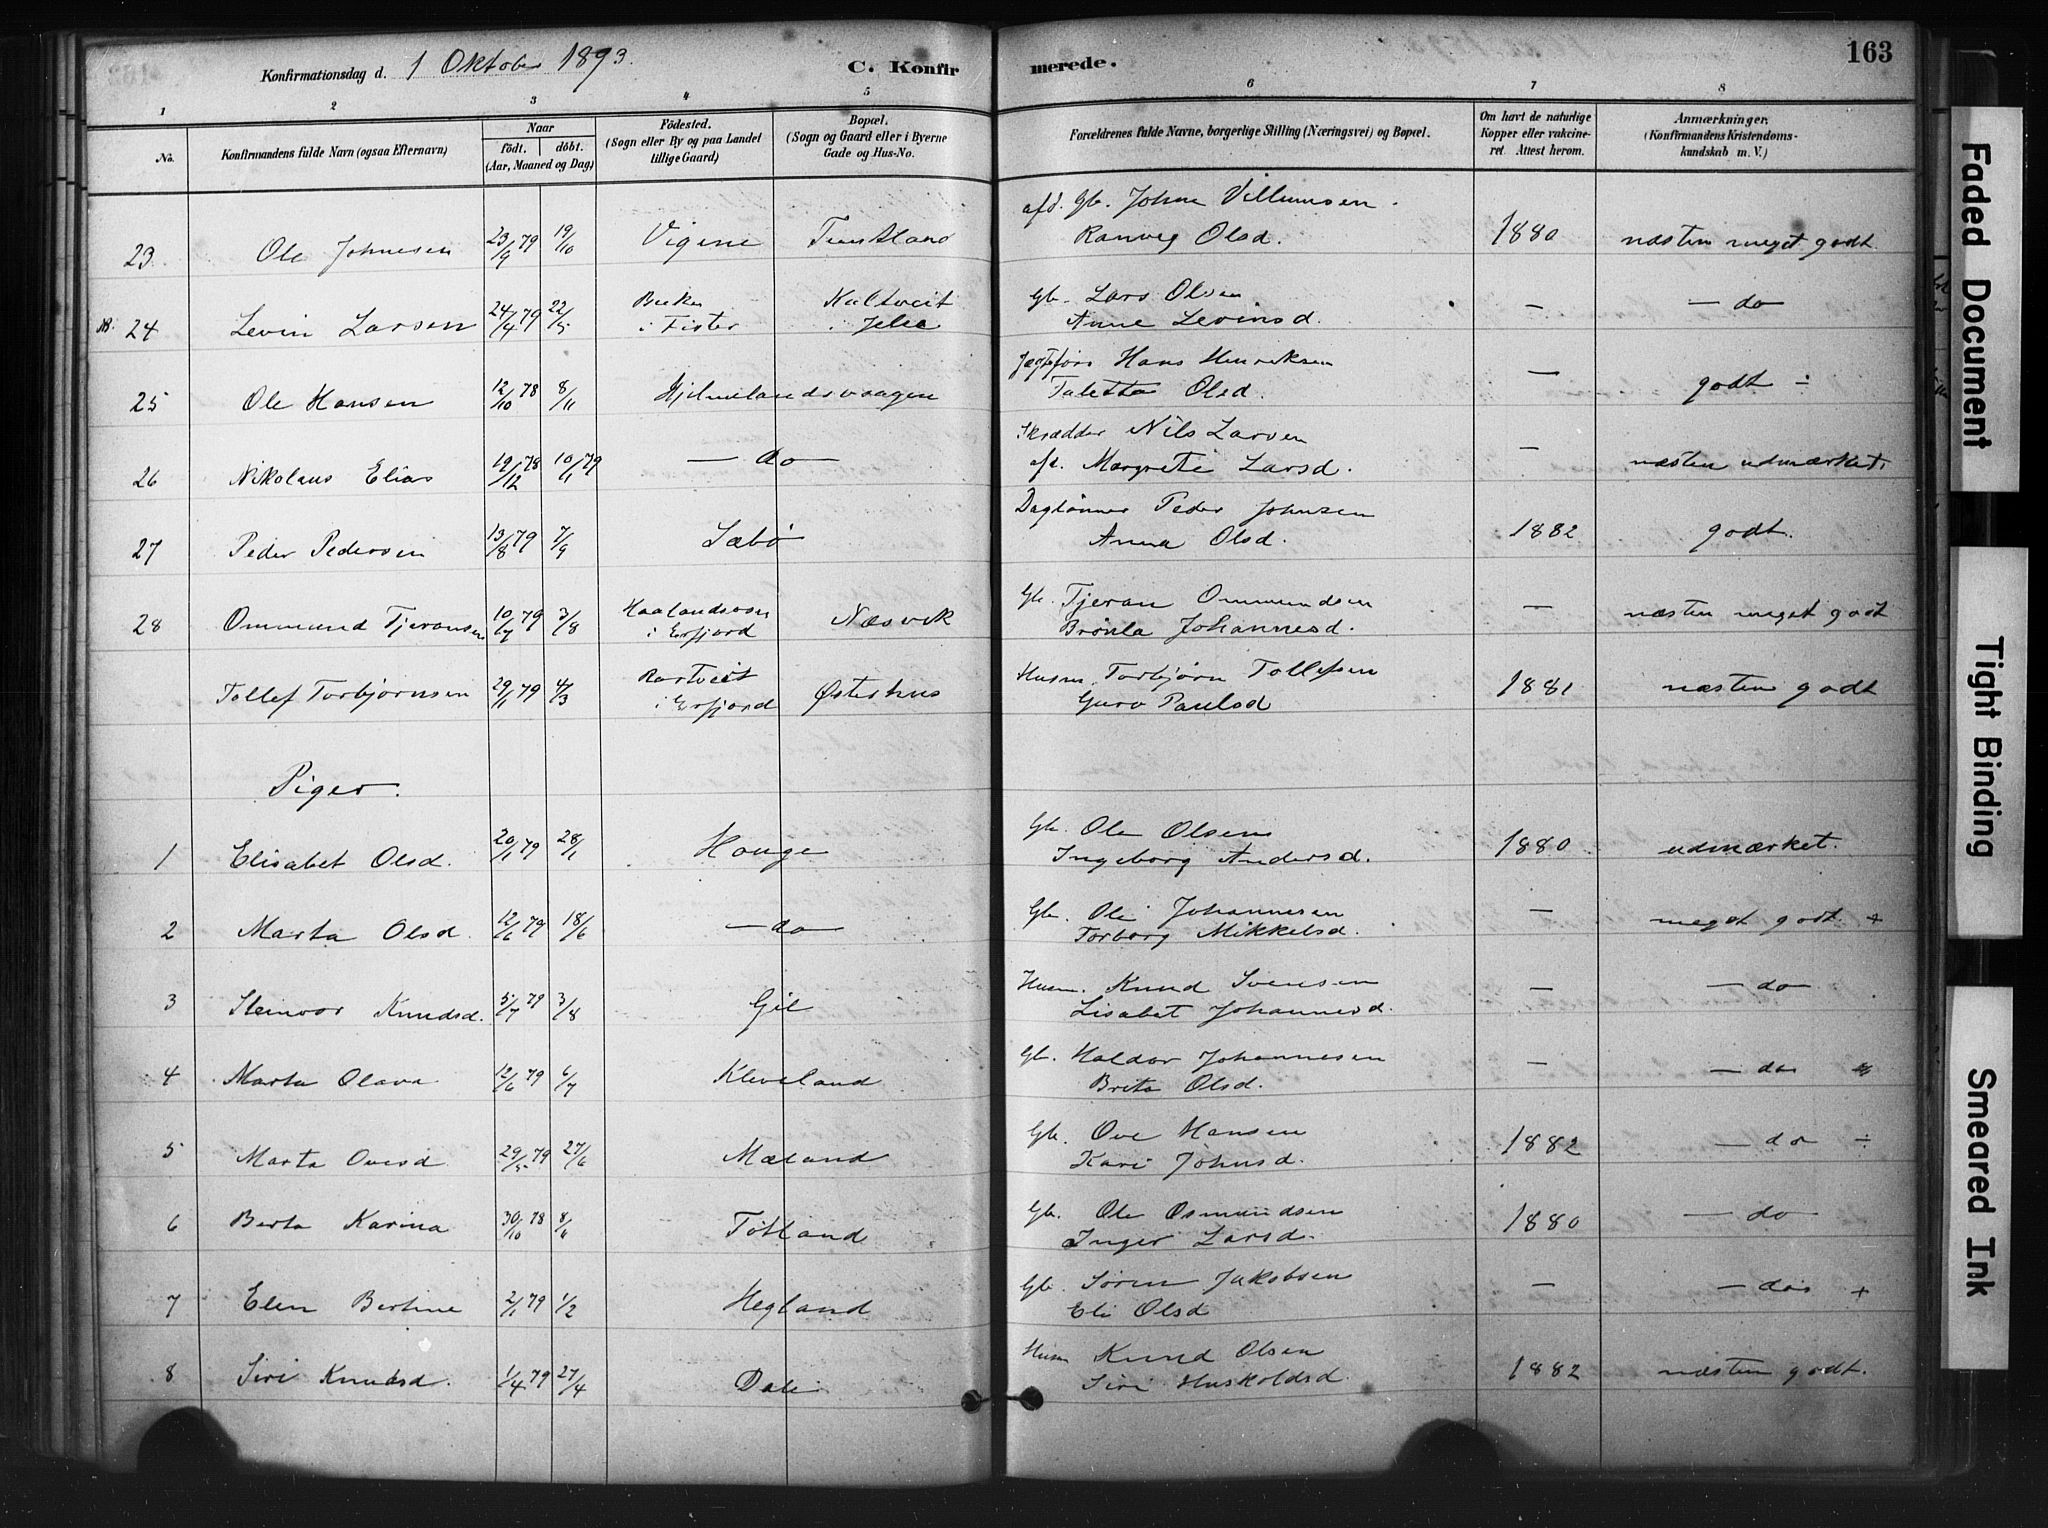 163
Konfirmationsdag d. 1 Oktober 1893. C. Konfirmerede.
1 2 3 4 5 6 7 8
No. Konfirmandens fulde Navn (ogsaa Efternavn) Naar födt. döbt. (Aar, Maaned og Dag) Födested. (Sogn eller By og paa Landet tillige Gaard) Bopæl. (Sogn og Gaard eller i Byerne Gade og Hus-No. Forældrenes fulde Navne, borgerlige Stilling (Næringsvei) og Bopæl. Om havt de naturlige Kopper eller vakcineret. Attest herom. Anmærkninger. (Konfirmandens Kristendomskundskab m. V.)
afd. Gb. Johne Villumsen.
23 Ole Johnesen 23/9 79 19/10 Vigene Ranveg Olsd. 1880 næsten meget godt
NB. 24 Levin Larsen 24/4 79 22/5 i Fister Kultveit i Jelse Gb. Lars Olsen — — do
Anne Levinsd.
25 Ole Hansen 12/10 78 8/11 Hjelmelandsvaagen Hans Henriksen — godt ÷
Taletta Olsd.
26 Nikolaus Elias 19/12 78 10/1 79 — do — Skrædder Nils Larsen — næsten udmærket.
af. Margrete Larsd.
27 Peder Pedersen 13/8 79 7/9 Sæbö Daglönner Peder Johnsen 1882 godt.
Anna Olsd.
28 Ommund Tjeransen 10/7 79 3/8 i Erfjord Næsvik Gb. Tjeran Ommundsen — næsten meget godt
Brönla Johannesd.
Tollef Torbjörnsen 29/1 79 4/3 i Erfjord Østerhus Husm. Torbjörn Tollefsen 1881 næsten godt
Guro Paulsd
Piger.
1 Elisabet Olsd. 20/1 79 28/1 Houge Gb. Ole Olsen 1880 udmærket.
Ingeborg Andersd.
2 Marta Olsd. 12/6 79 18/6 — do — Gb. Ole Johannesen — meget godt +
Torborg Mikkelsd.
3 Steinvor Knudsd. 5/7 79 3/8 Gil Husm. Knud Svensen — — do
Lisabet Johannesd.
4 Marta Olava 12/6 79 6/7 Kleveland Gb. Haldor Johannesen — — do
Brita Olsd.
5 Marta Ovesd 29/5 79 27/6 Mæland Gb. Ove Hansen 1882 — do ÷
Kari Johnsd.
6 Berta Karina 30/10 78 Tötland Gb. Ole Osmundsen 1880 — do
Inger Larsd.
7 Elen Bertine 2/1 79 1/2 Hegland Gb. Sören Jakobsen — — do +
Eli Olsd
8 Siri Knudsd. 1/4 79 27/4 Dale Husm Knud Olsen 1882 næsten godt.
Siri Huskoldsd.
Faded Document
Tight Binding
Smeared Ink